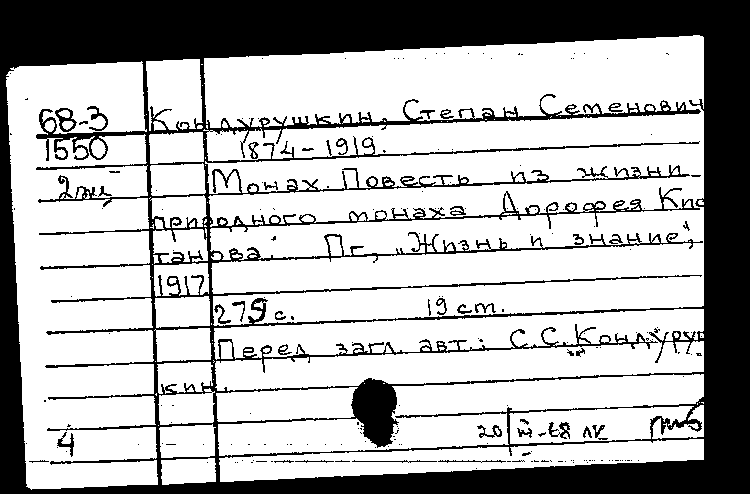 68-3 Кондурушкин, Степан Семенович
1550 1874-1919.
2 экз Монах. Повесть из жизни
природного монаха Дорофея Кис
танова. Пг, „Жизнь и знание",
1917
279 с. 19 cm.
Перед загл. авт.: С.С.Кондуруш
кин.
4 20 III-68 лк